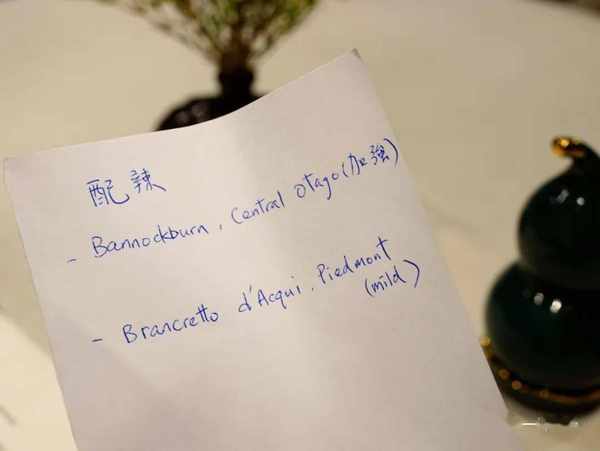 配辣
- Bannockburn, Central Otago (加強)
- Brancretto d'Acqui, Piedmont
(mild)